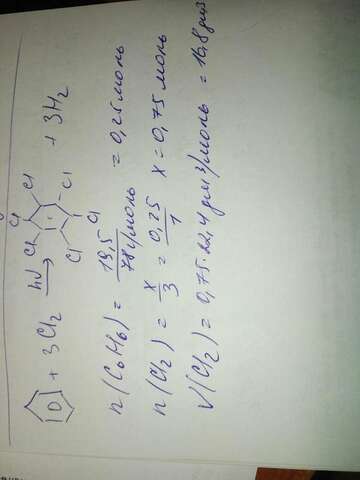 + 3Cl2 hν Cl Cl Cl Cl Cl Cl + 3H2
n(C6H6) = 19,5 / 78г/моль = 0,25 моль
n(Cl2) = x / 3 = 0,25 / 1 x = 0,75 моль
V(Cl2) = 0,75·22,4 дм3/моль = 16,8 дм3